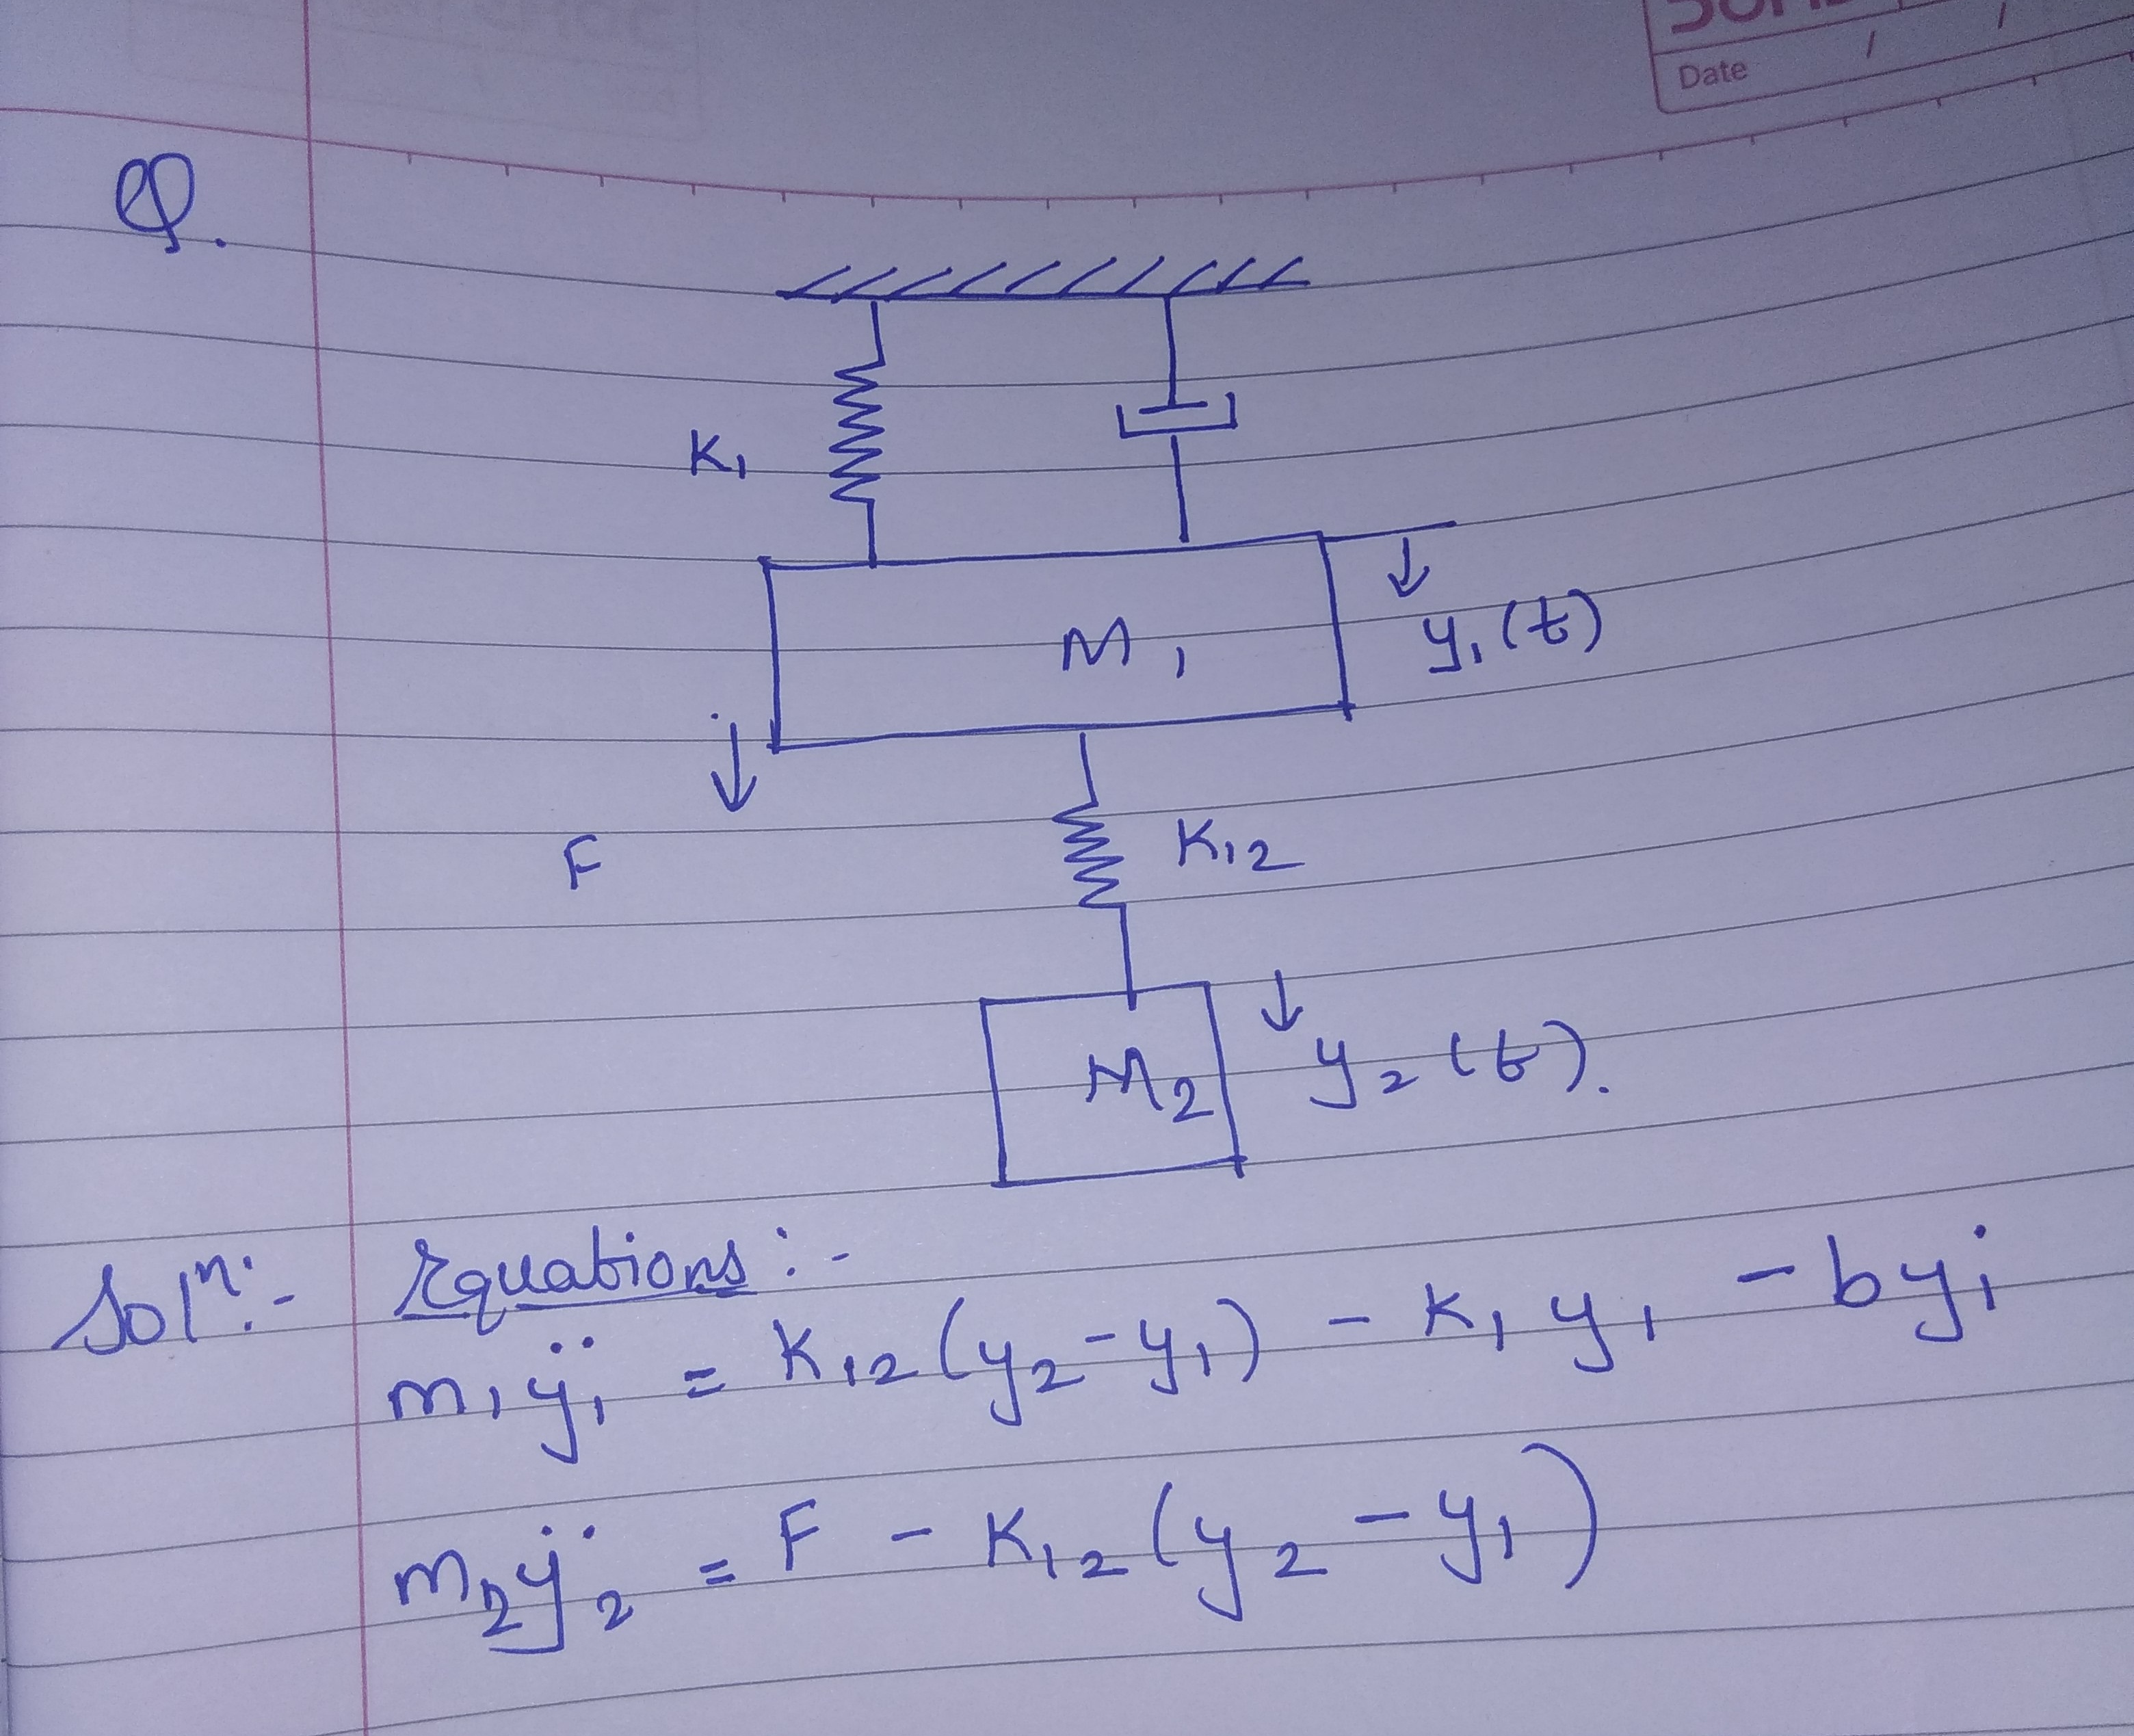 Date / /
Q.
K₁
M₁
y₁(t)
F
K₁₂
M₂
y₂(t).
Solⁿ:- Equations:-
m₁ÿ₁ = K₁₂(y₂-y₁) - K₁y₁ - bẏ₁
m₂ÿ₂ = F - K₁₂(y₂-y₁)